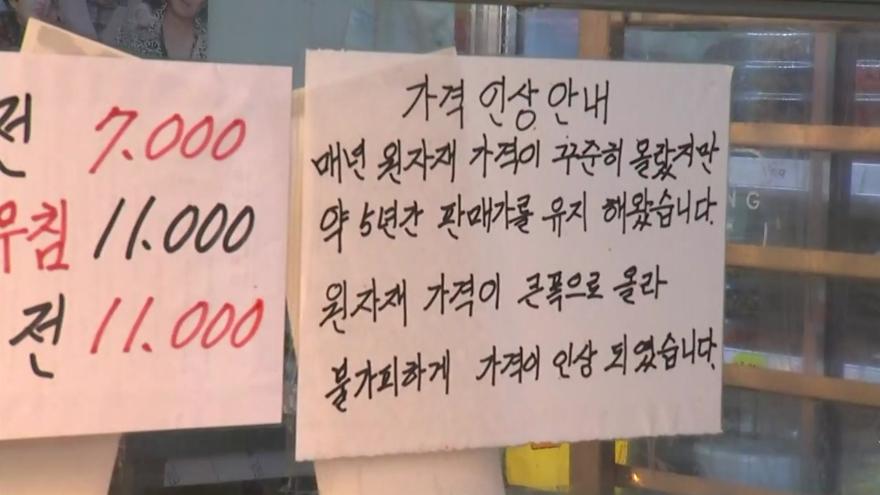 전 7.000
무침 11.000
전 11.000
가격 인상 안내
매년 원자재 가격이 꾸준히 올랐지만
약 5년간 판매가를 유지 해왔습니다.
원자재 가격이 큰폭으로 올라
불가피하게 가격이 인상 되였습니다.
NG